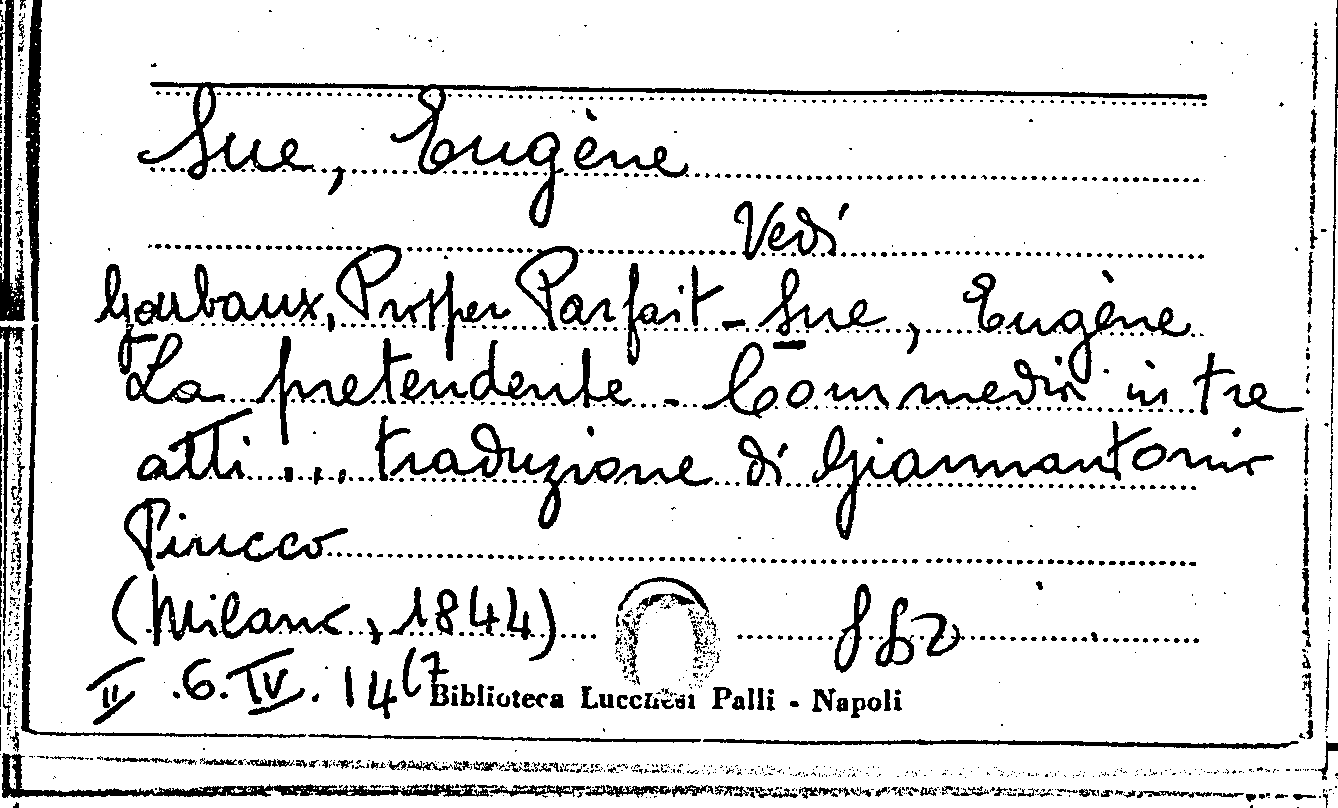 Sue, Eugène
Vedi
Goubaux, Prosper Parfait - Sue, Eugène
La pretendente - Commedia in tre
atti ... traduzione di Giannantonio
Piucco
(Milano, 1844)
II .6.IV. 14(7
Biblioteca Lucchesi Palli - Napoli